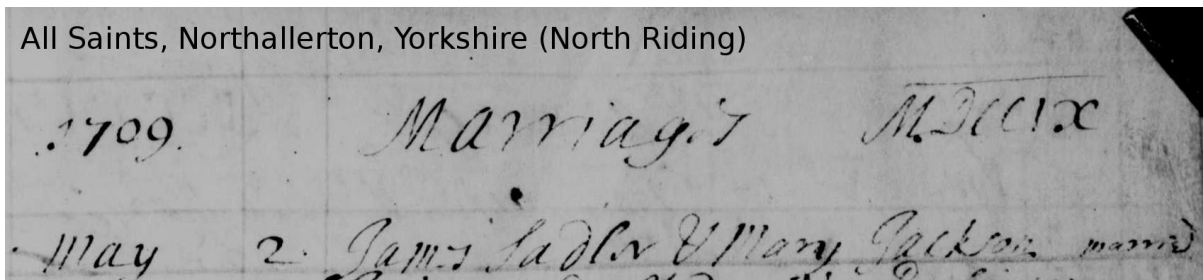 All Saints, Northallerton, Yorkshire (North Riding)
1709. Marriages MDCCIX
May 2. James Sadler & Mary Jackson married